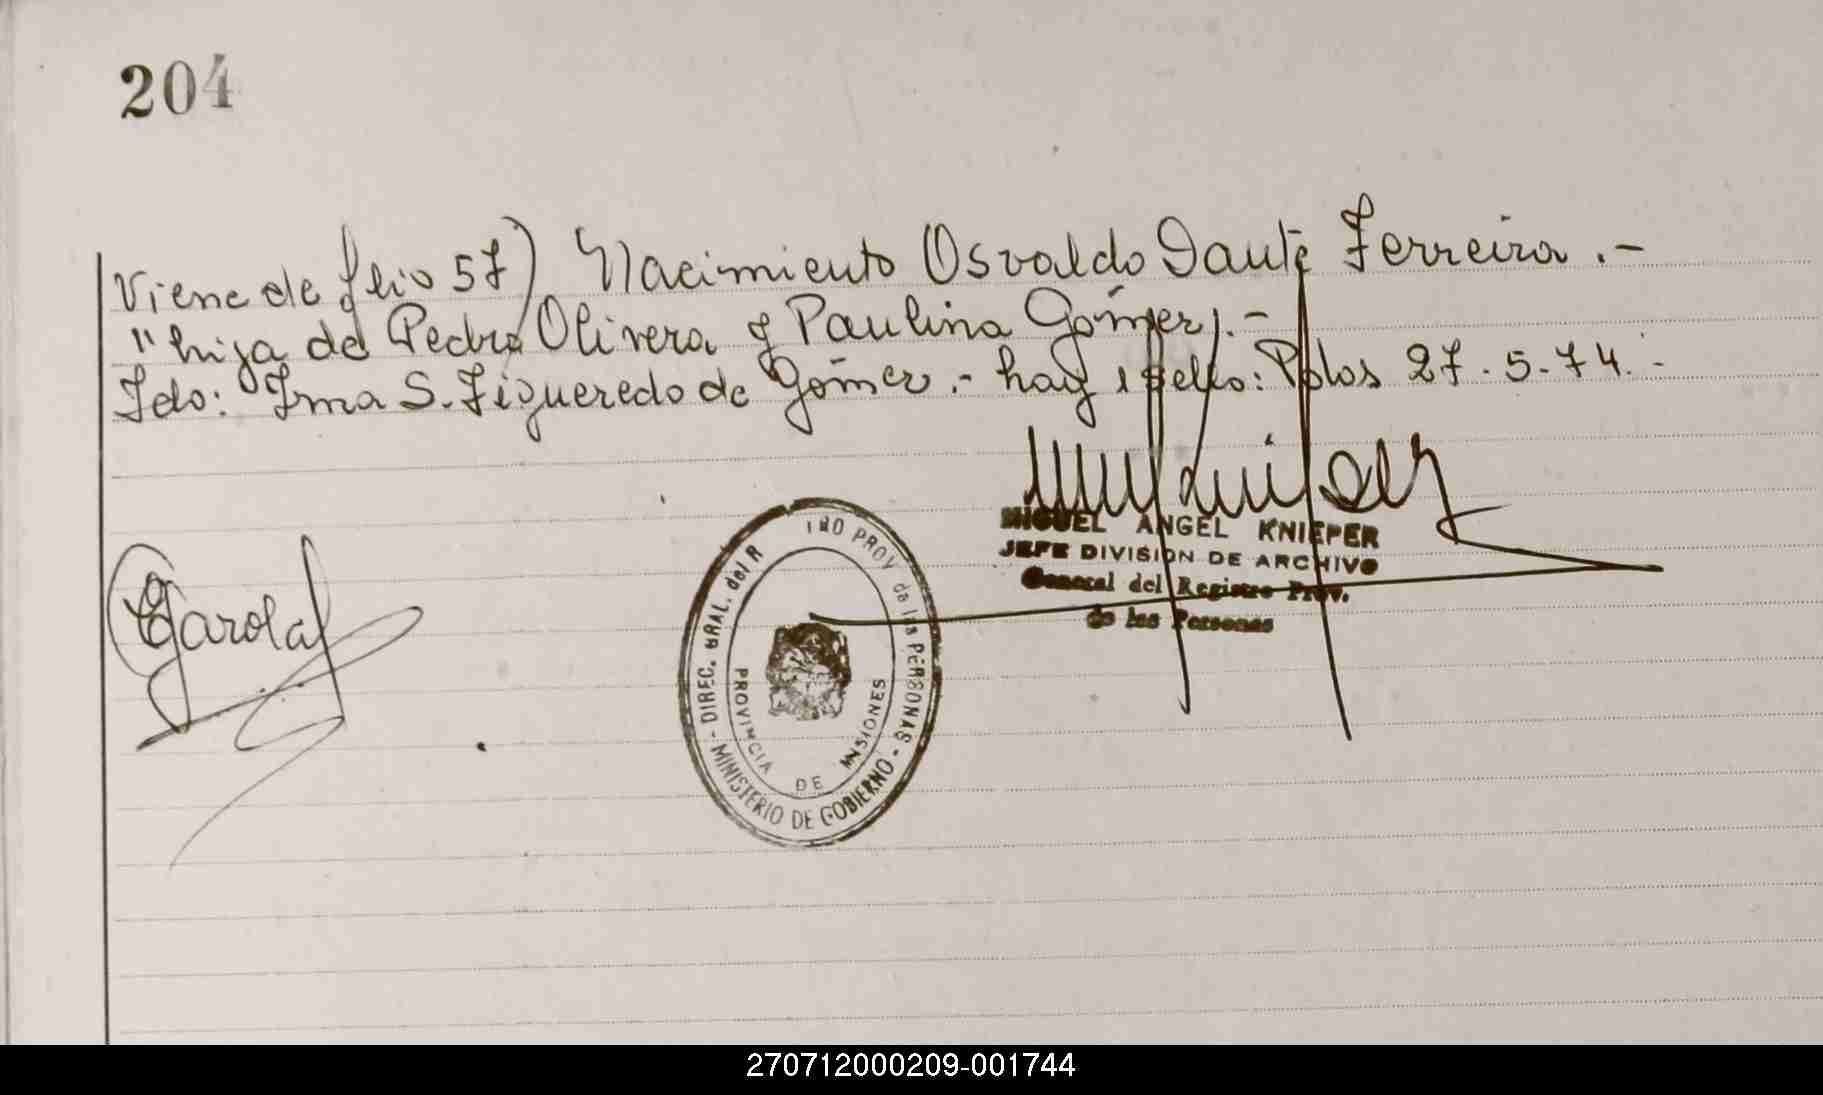 204
Viene de folio 57) Nacimiento Osvaldo Dante Ferreira .-
"hija de Pedro Olivera y Paulina Gómez).-
Fdo: Irma S. Figueredo de Gómez.- hay 1 sello: Pdas 27.5.74.-
MIGUEL ANGEL KNIEPER
JEFE DIVISION DE ARCHIVO
General del Registro Prov.
de las Personas
Garola
DIREC. GRAL. del R TRO PROV de las PERSONAS
- MINISTERIO DE GOBIERNO -
PROVINCIA DE MISIONES
270712000209-001744